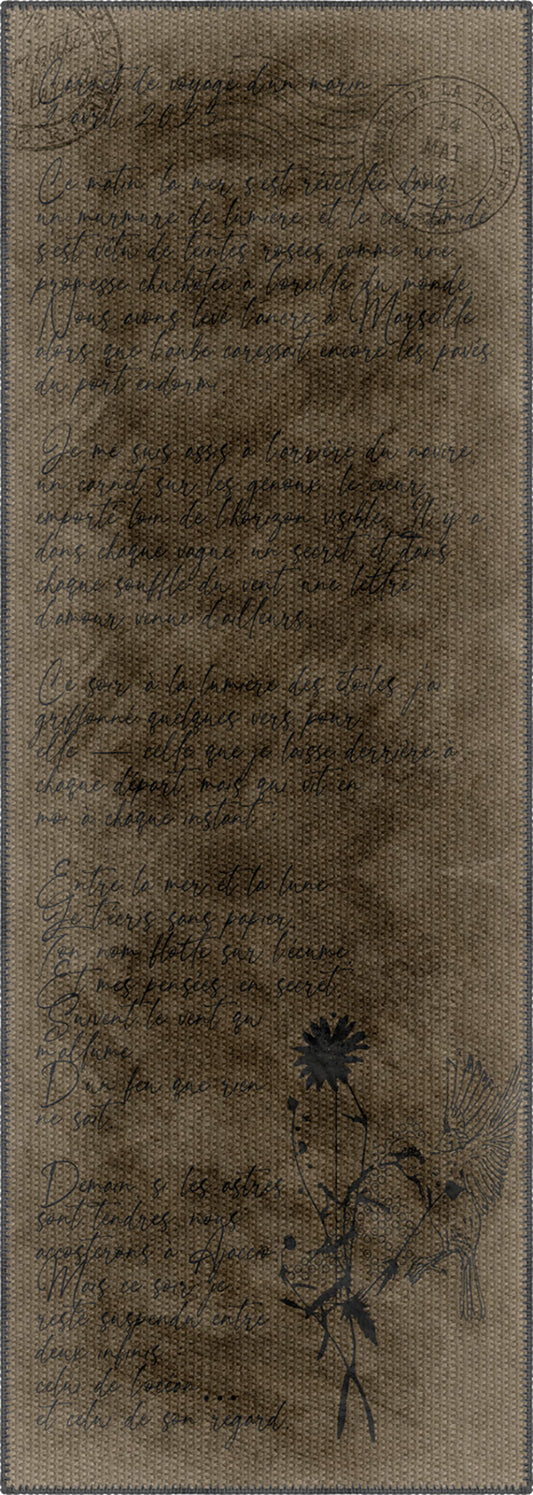 Carnet de voyage d'un marin
2 avril 2025
DE LA TOUR EIFF
24
MAI
Ce matin, la mer s'est réveillée dans
un murmure de lumière, et le ciel timide
s'est vêtu de teintes rosées comme une
promesse chuchotée à l'oreille du monde.
Nous avons levé l'ancre à Marseille
alors que l'aube caressait encore les pavés
du port endormi.
Je me suis assis à l'arrière du navire
un carnet sur les genoux, le cœur
emporté loin de l'horizon visible. Il y a
dans chaque vague un secret, et dans
chaque souffle du vent une lettre
d'amour venue d'ailleurs.
Ce soir à la lumière des étoiles j'ai
griffonné quelques vers pour
elle — celle que je laisse derrière à
chaque départ mais qui vit en
moi à chaque instant :
Entre la mer et la lune
Je t'écris sans papier,
Ton nom flotte sur l'écume
Et mes pensées en secret
Suivent le vent qui
m'allume
D'un feu que rien
ne sait.
Demain, si les astres
sont tendres, nous
accosterons à Ajaccio.
Mais ce soir je
reste suspendu entre
deux infinis :
celui de l'océan...
et celui de son regard.